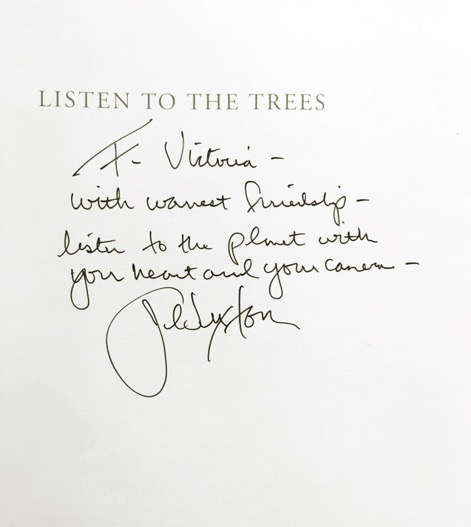 LISTEN TO THE TREES
To Victoria –
with warmest friendship –
listen to the planet with
your heart and your camera –